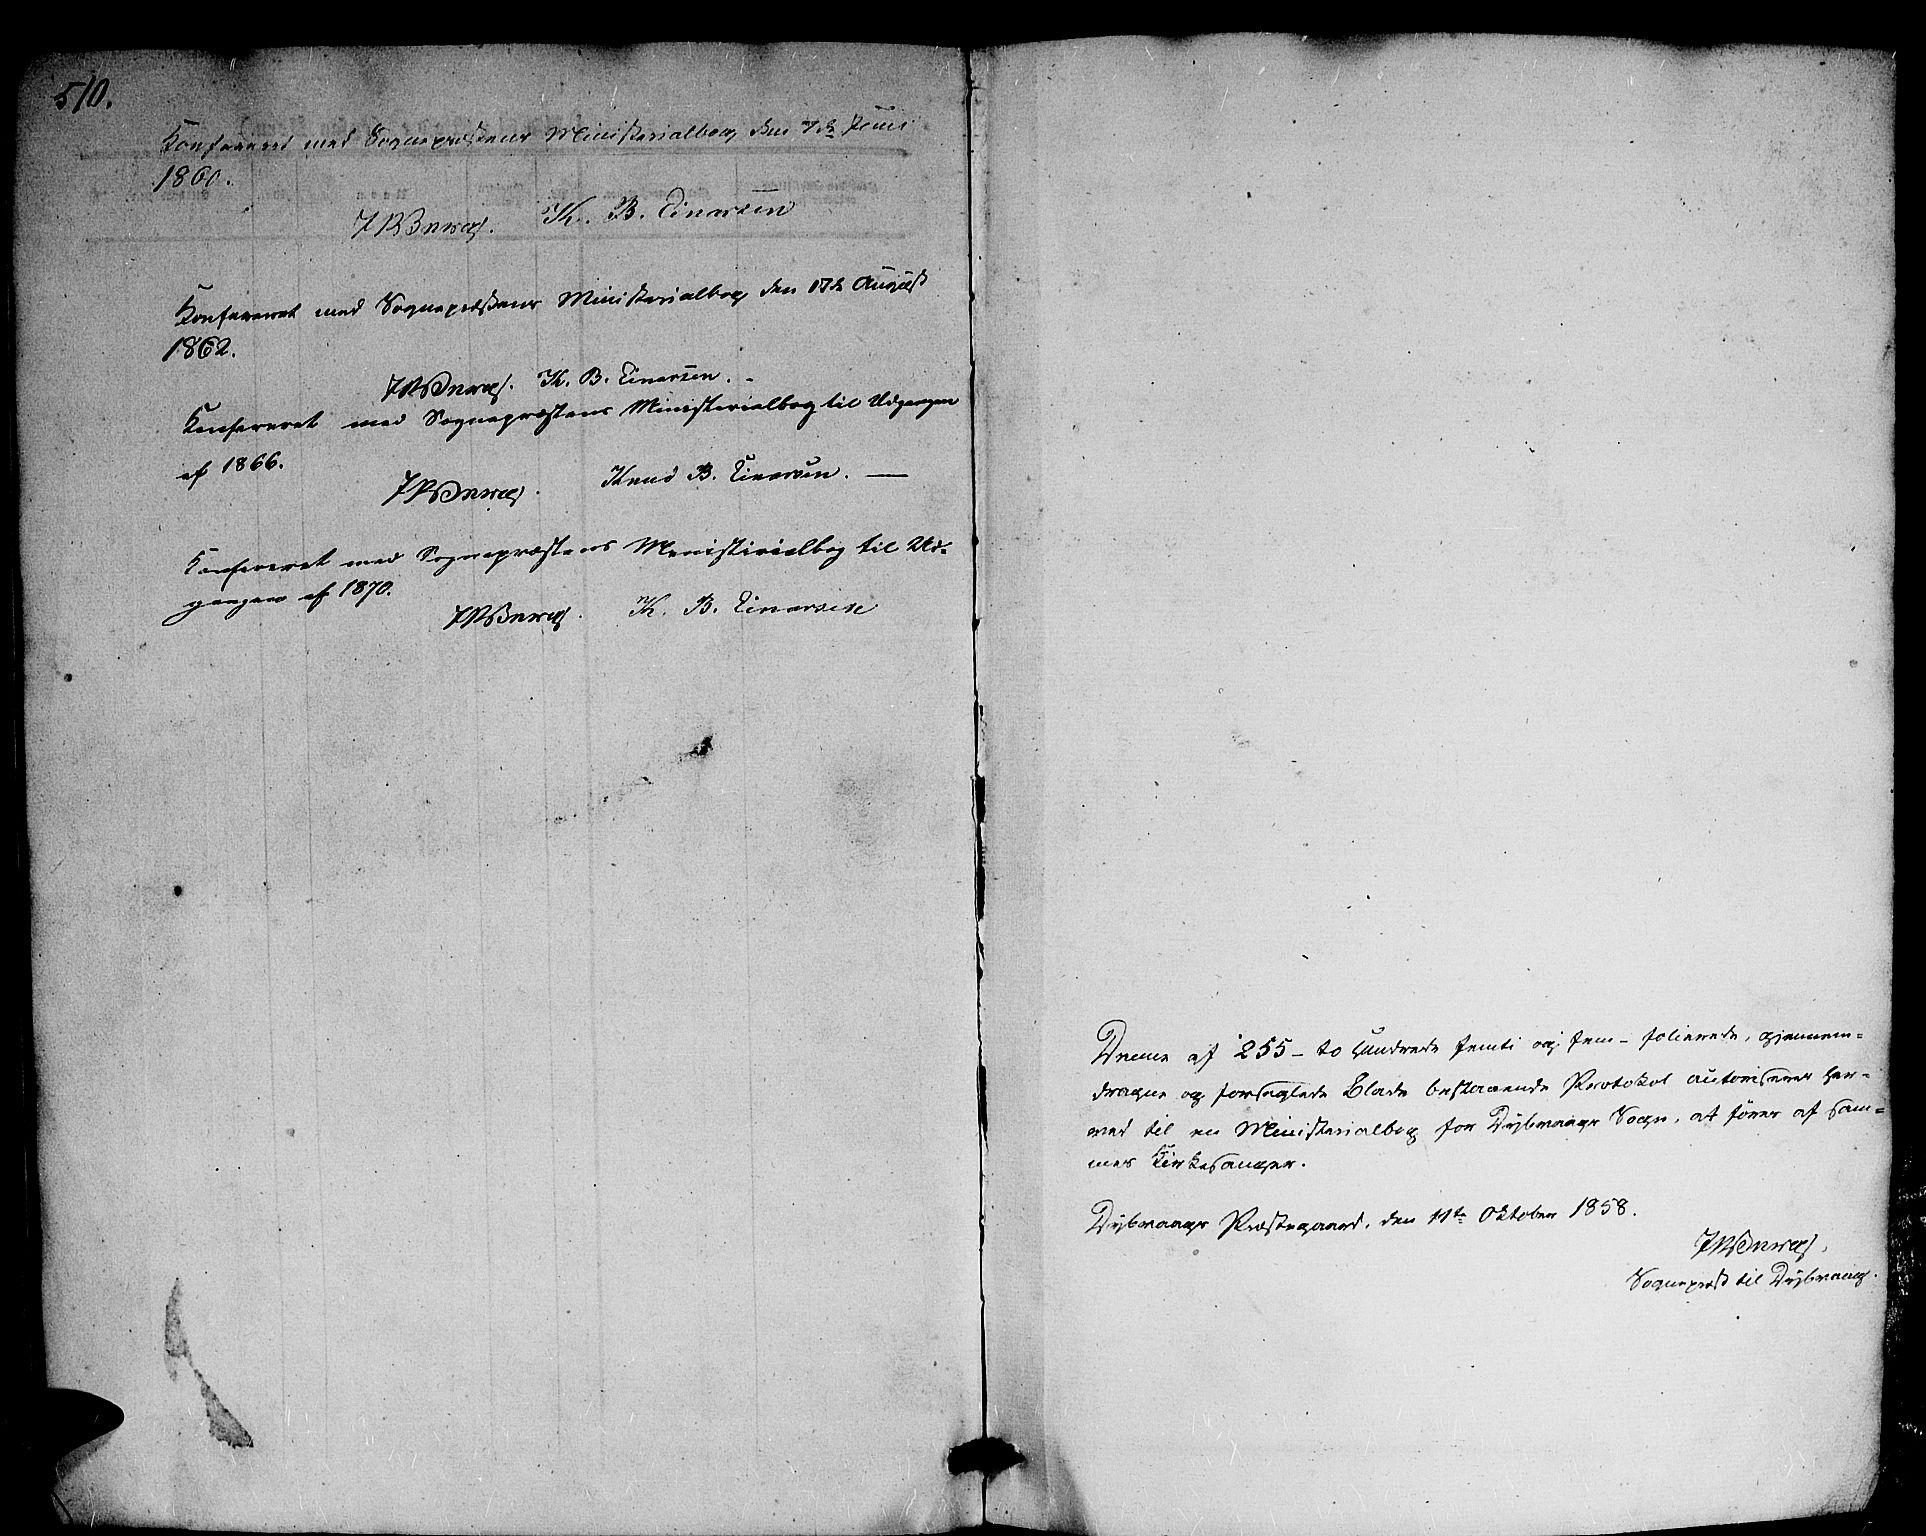 510.
Konfereret med Sognepræstens Ministerialbog den 7de Juni
1860.
K. B. Einarsen
Konfereret med Sognepræstens Ministerialbog den 17de August
1862.
K. B. Einarsen.
Konfereret med Sognepræstens Ministerialbog til Udgangen
af 1866.
Knud B. Einarsen.
Konfereret med Sognepræstens Ministerialbog til Ud-
gangen af 1870.
K. B. Einarsen
Denne af 255 - to Hundrede femti og fem - folierede, gjennem-
dragne og forseglede Blade bestaaende Protokol autoriseres her-
ved til en Ministerialbog for Dybvaags Sogn, at føres af sam-
mes Kirkesanger.
Dybvaags Præstegaard, den 11te Oktober 1858.
Sognepræst til Dybvaag.